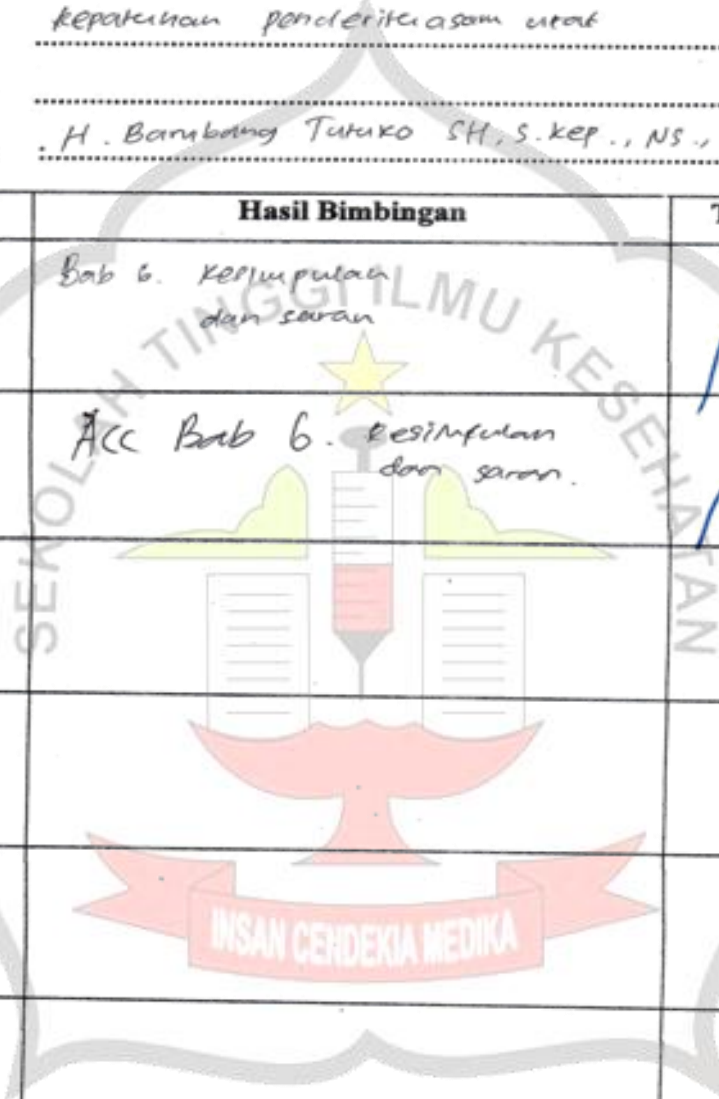 kepatuhan penderita asam urat
. H. Bambang Tutuko SH, S.Kep., NS.,
Hasil Bimbingan
T
Bab 6. Kesimpulan
dan saran
Acc Bab 6. Kesimpulan
dan saran.
SEKOLAH TINGGI ILMU KESEHATAN
INSAN CENDEKIA MEDIKA